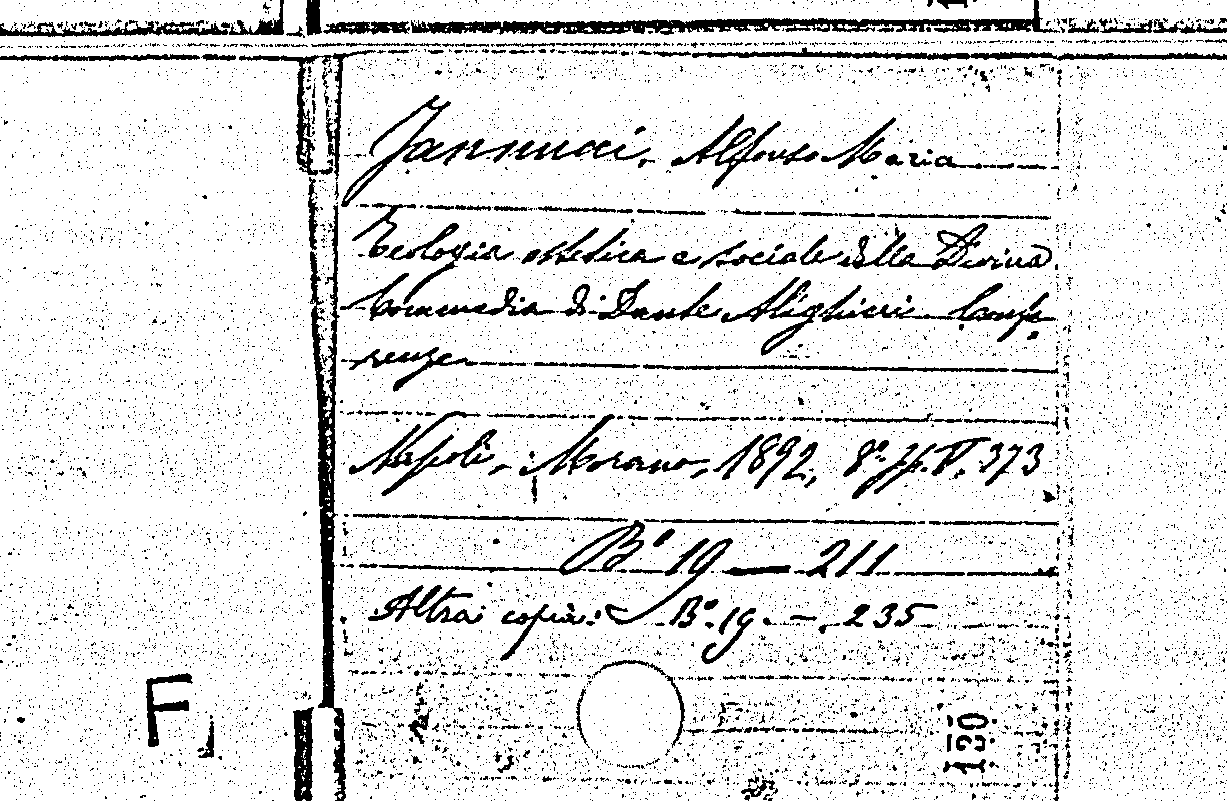 Jannucci, Alfonso Maria
Teologia estetica e sociale della Divina
Commedia di Dante Alighieri. Confe
renze
Napoli, Morano, 1892, 8º. pp. V, 373
Bº 19 — 211
Altra copia: Bº. 19. — 235
F
130